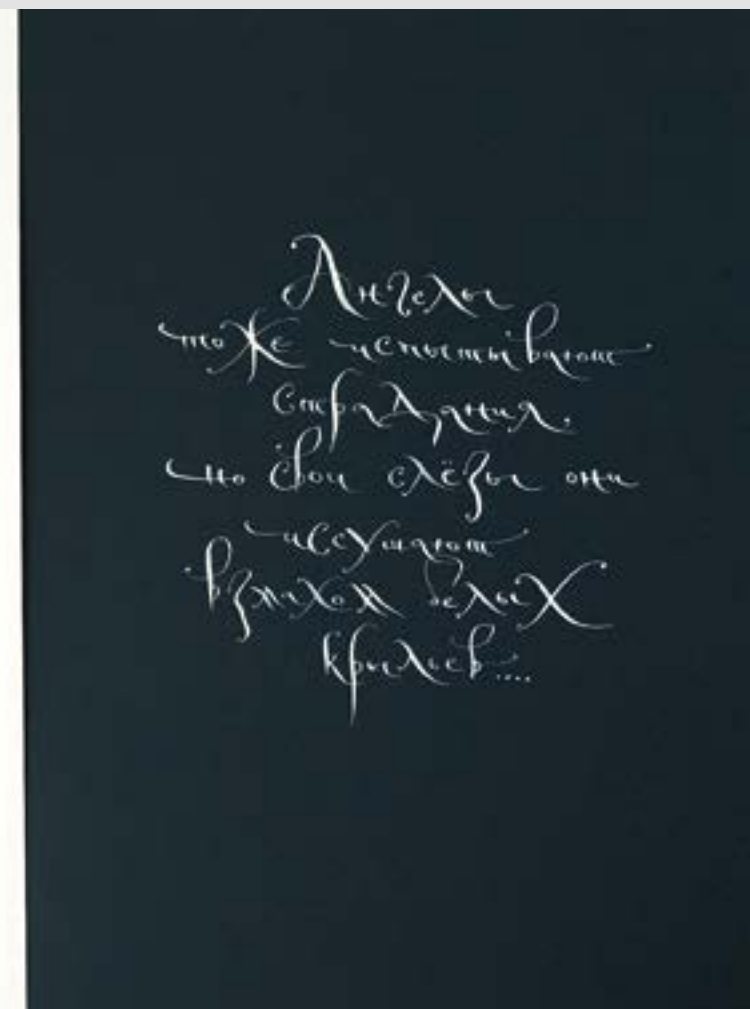 Ангелы
тоже испытывают
страдания,
но свои слёзы они
иссушают
взмахом белых
крыльев....